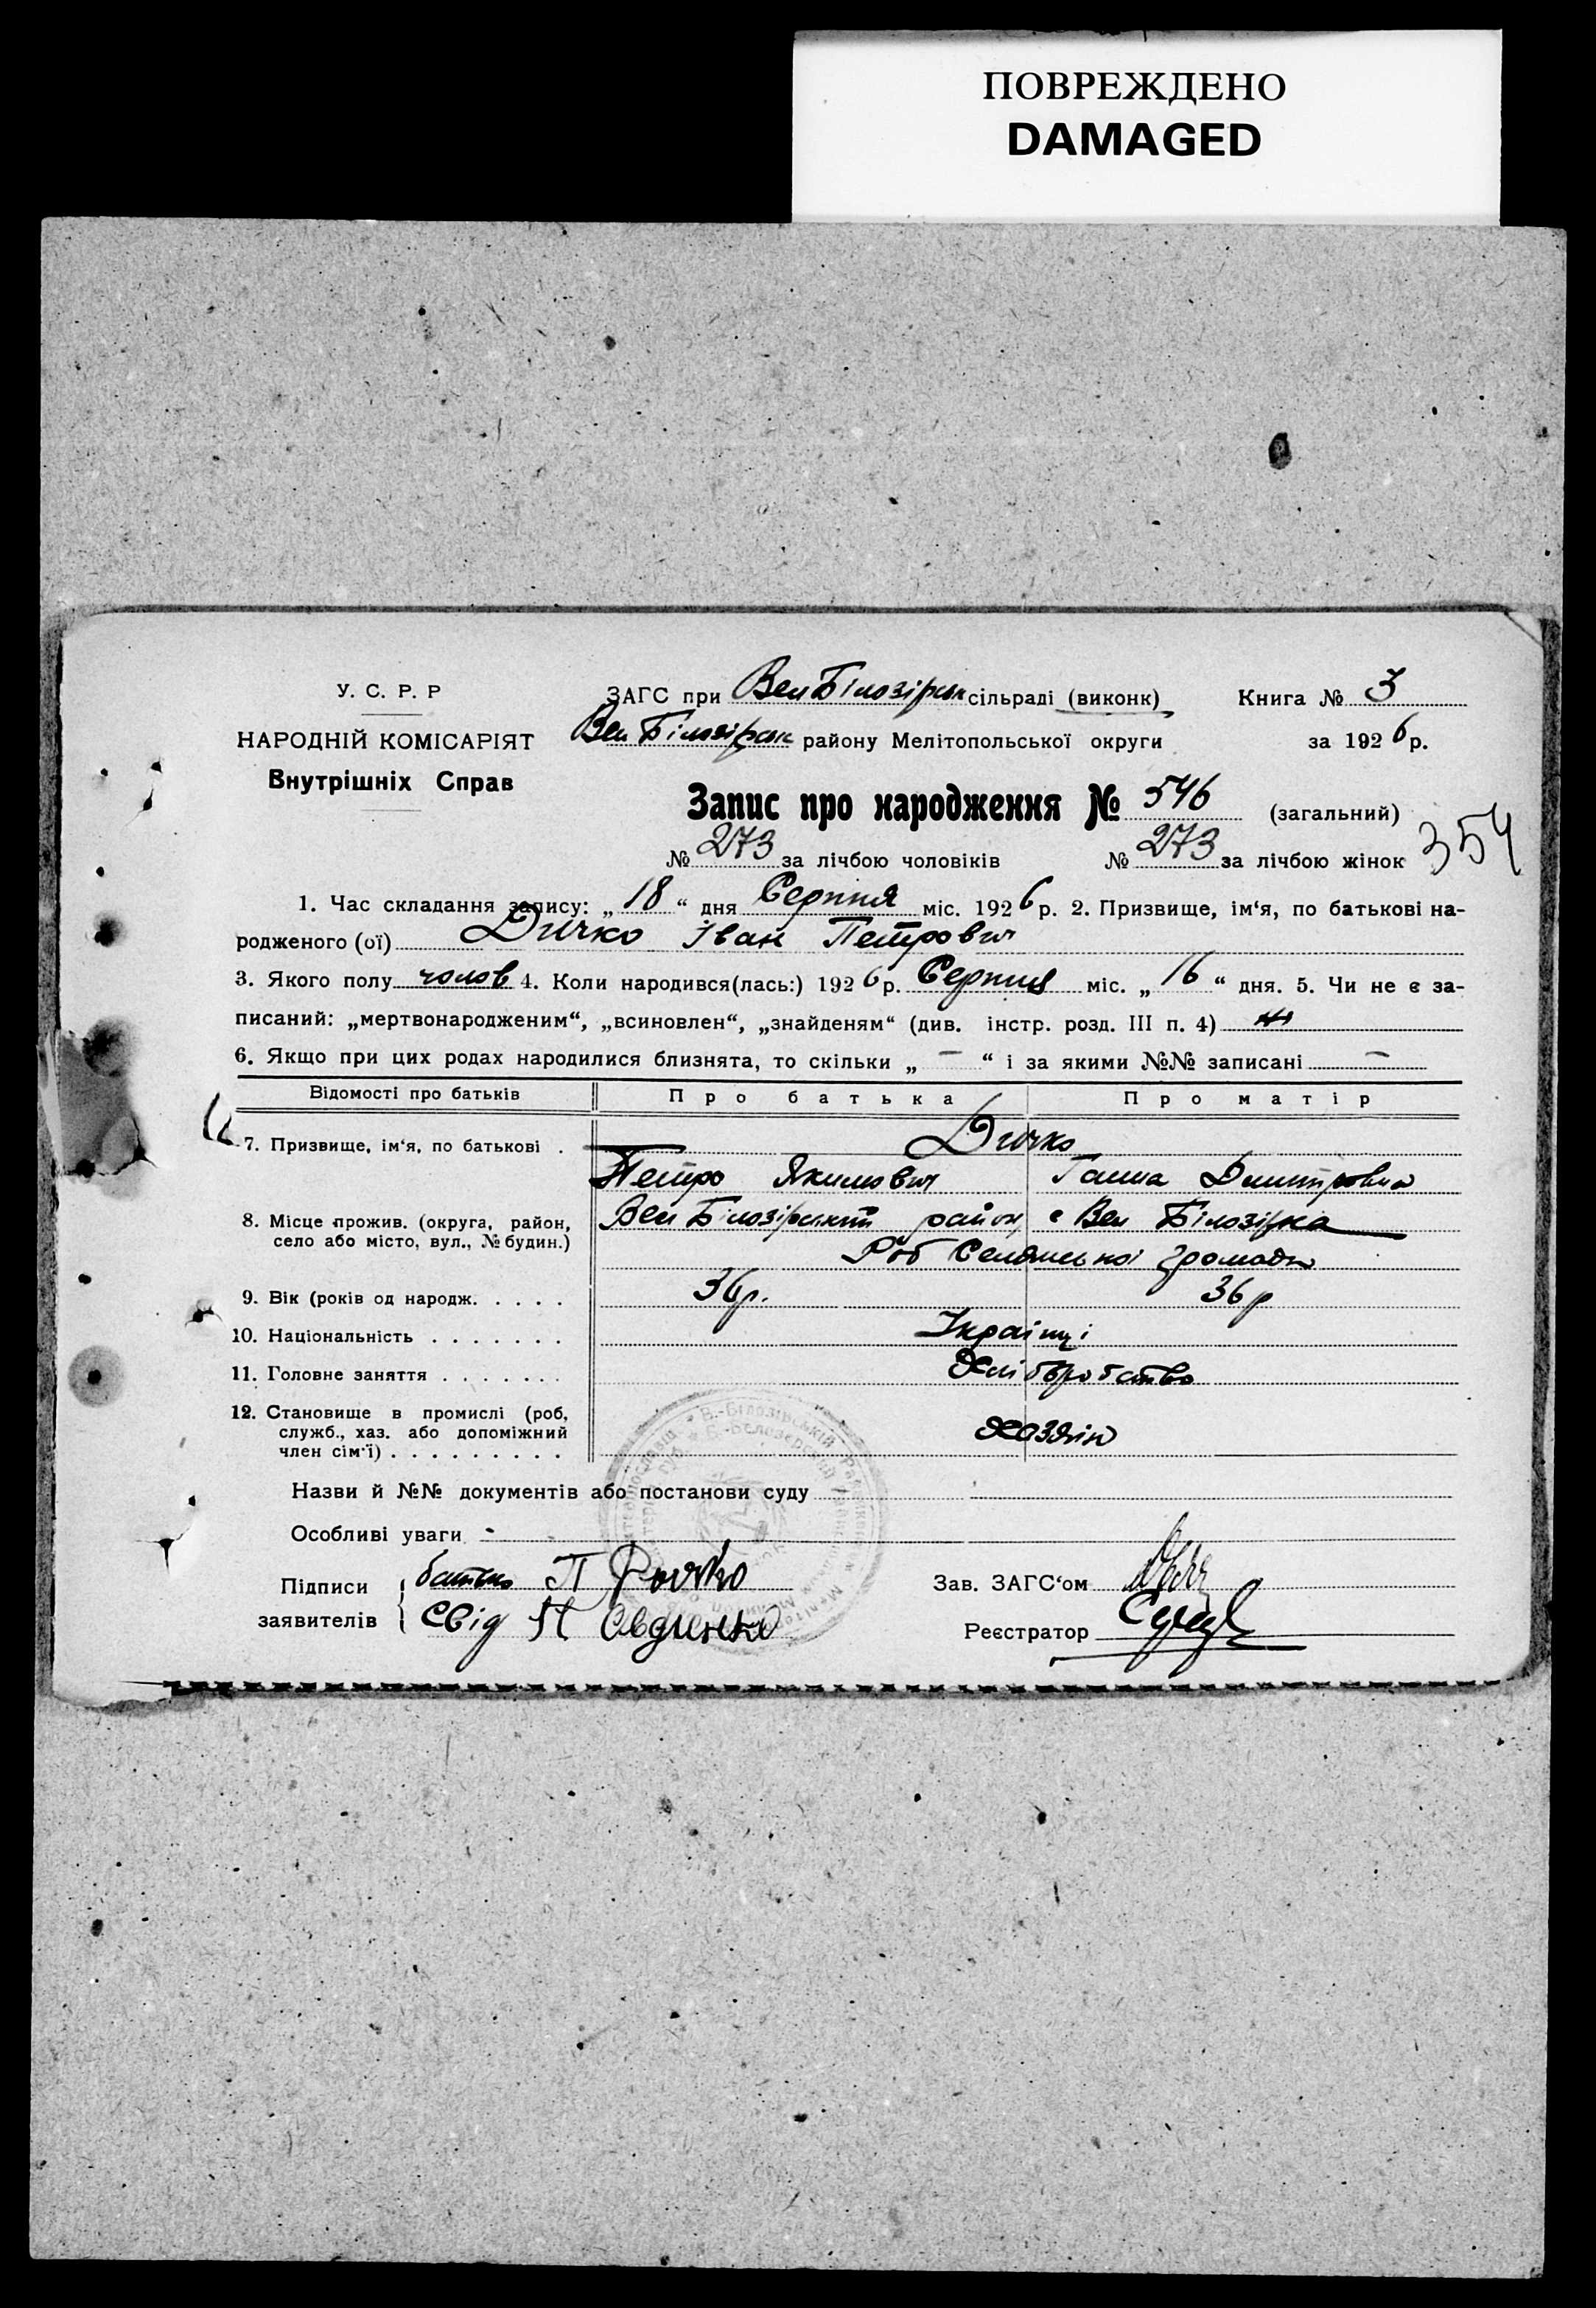 ПОВРЕЖДЕНО
DAMAGED
У. С. Р. Р
НАРОДНІЙ КОМІСАРІЯТ
Внутрішніх Справ
ЗАГС при Вел Білозірськ сільраді (виконк) Книга № 3
Вел Білозірськ району Мелітопольської округи за 1926 р.
Запис про народження № 546 (загальний)
№ 273 за лічбою чоловіків № 273 за лічбою жінок 354
1. Час складання запису: „18“ дня Серпня міс. 1926 р. 2. Призвище, ім‘я, по батькові на-
родженого (ої) Дичко Іван Петрович
3. Якого полу чолов 4. Коли народився(лась:) 1926 р. Серпня міс. „16“ дня. 5. Чи не є за-
писаний: „мертвонародженим“, „всиновлен“, „знайденям“ (див. інстр. розд. III п. 4) ні
6. Якщо при цих родах народилися близнята, то скільки „ — “ і за якими №№ записані —
Відомості про батьків Про батька Про матір
7. Призвище, ім‘я, по батькові . Дичко
Петро Якимович Ганна Дмитровна
8. Місце прожив. (округа, район, село або місто, вул., № будин.) Вел Білозірський район, с Вел Білозірка
Роб Селянської громади
9. Вік (років од народж. . . . . 36р. 36 р
10. Національність . . . . . . . Українці
11. Головне заняття . . . . . . . Хліборобство
12. Становище в промислі (роб, служб., хаз. або допоміжний член сім‘ї) . . . . . . . . . Хазяїн
Назви й №№ документів або постанови суду
Особливі уваги -
Підписи батько П Дичко Зав. ЗАГС‘ом
заявителів Свід Реєстратор